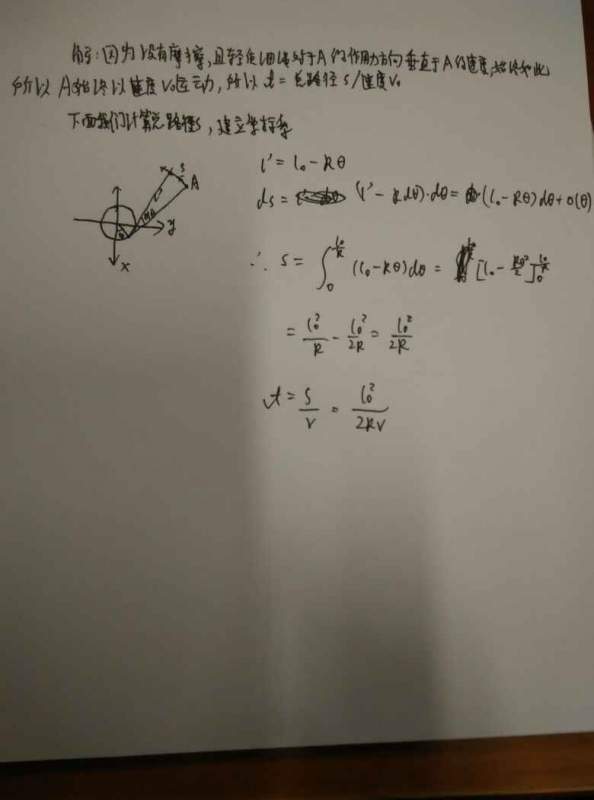 解:因为没有摩擦,且轻质细绳对于A的作用力方向垂直于A的速度,始终如此
所以A始终以速度V₀运动,所以 t = 总路径 s/速度V₀
下面我们计算总路程s,建立坐标系
l' = l₀ - Rθ
ds = (l' - Rdθ)·dθ = (l₀ - Rθ)dθ + o(θ)
s
A
y
x
∴ s = ∫₀^{l₀/R} (l₀ - Rθ)dθ = [l₀ - Rθ²/2]₀^{l₀/R}
= l₀²/R - l₀²/2R = l₀²/2R
t = s/v = l₀²/2Rv